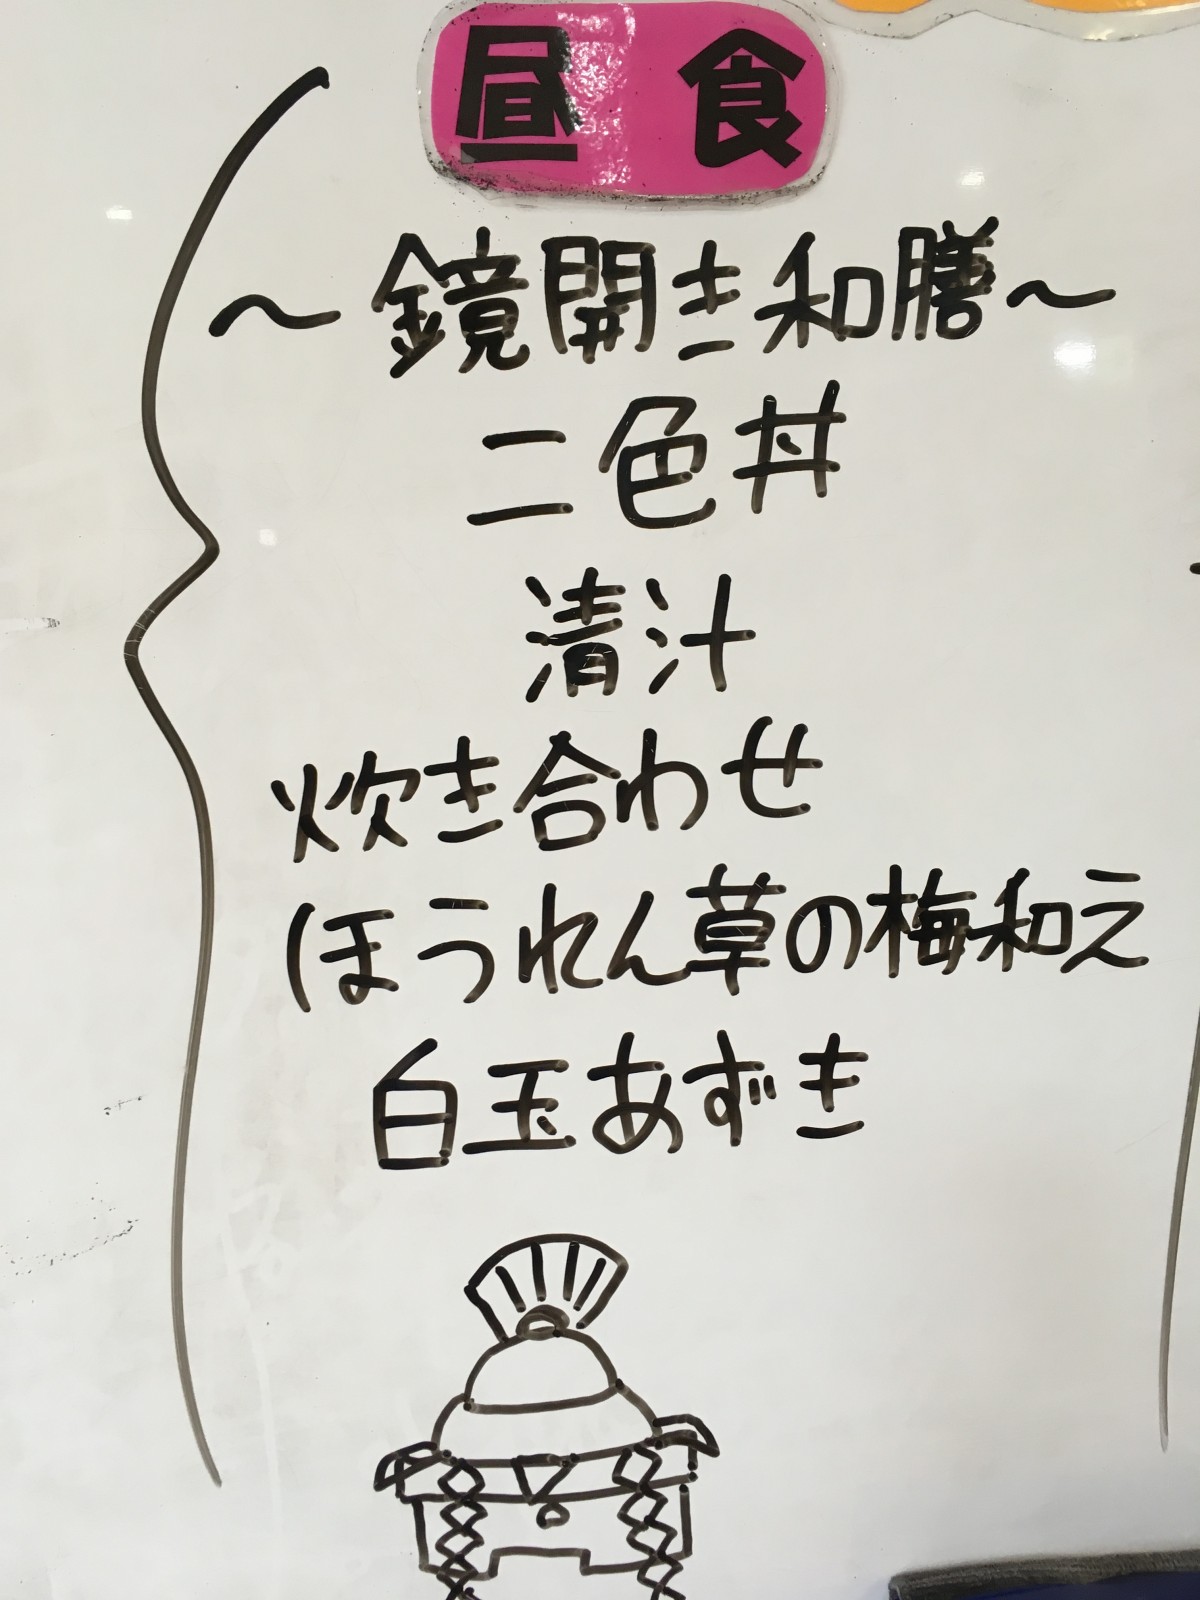 昼食
～鏡開き和膳～
二色丼
清汁
炊き合わせ
ほうれん草の梅和え
白玉あずき